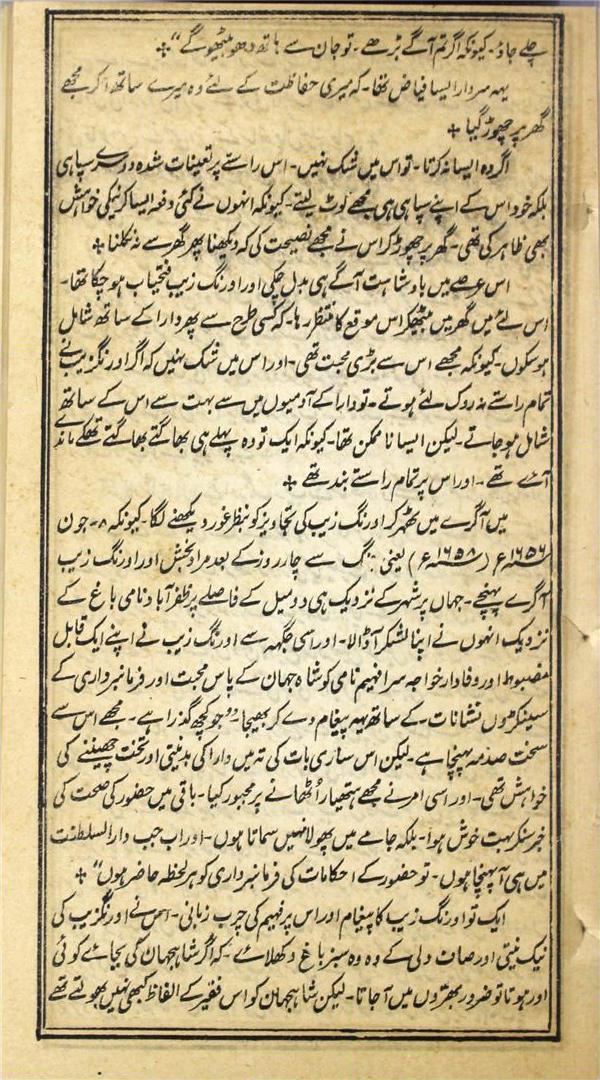 چلے جاؤ۔ کیونکہ اگر تم آگے بڑھے۔ تو جان سے ہاتھ دھو بیٹھو گے“ ✣
یہہ سردار ایسا فیاض تھا۔ کہ میری حفاظت کے لئے وہ میرے ساتھ آکر مجھے
گھر پر چھوڑ گیا ✣
اگر وہ ایسا نہ کرتا۔ تو اس میں شک نہیں۔ اس راستے پر تعینات شدہ دوسرے سپاہی
بلکہ خود اس کے اپنے سپاہی ہی مجھے لوٹ لیتے۔ کیونکہ انہوں نے کئی دفعہ ایسا کرنیکی خواہش
بھی ظاہر کی تھی۔ گھر پر چھوڑ کر اس نے مجھے نصیحت کی کہ دیکھنا پھر گھر سے نہ نکلنا ✣
اس عرصے میں بادشاہت آگے ہی بدل چکی اور اورنگ زیب فتحیاب ہو چکا تھا۔
اس لئے میں گھر میں بیٹھکر اس موقع کا منتظر رہا۔ کہ کسی طرح سے پھر دارا کے ساتھ شامل
ہو سکوں۔ کیونکہ مجھے اس سے بڑی محبت تھی۔ اور اس میں شک نہیں کہ اگر اورنگزیب نے
تمام راستے نہ روک لئے ہوتے۔ تو دارا کے آدمیوں میں سے بہت سے اس کے ساتھ
شامل ہو جاتے۔ لیکن ایسا ناممکن تھا۔ کیونکہ ایک تو وہ پہلے ہی بھاگتے بھاگتے تھکے ماندے
آئے تھے۔ اور اس پر تمام راستے بند تھے ✣
میں آگرے میں ٹھہر کر اورنگ زیب کی تجاویز کو بنظر غور دیکھنے لگا۔ کیونکہ ۸۔ جون
۱۶۵۶ء (۱۶۵۸ء) یعنی جنگ سے چار روز کے بعد مراد بخش اور اورنگ زیب
آگرے پہنچے۔ جہاں پر شہر کے نزدیک ہی دو میل کے فاصلے پر ظفر آباد نامی باغ کے
نزدیک انہوں نے اپنا لشکر آ ڈالا۔ اور اسی جگہہ سے اورنگ زیب نے اپنے ایک قابل
مضبوط اور وفادار خواجہ سرا فہیم نامی کو شاہ جہان کے پاس محبت اور فرمانبرداری کے
سینکڑوں نشانات کے ساتھ یہہ پیغام دے کر بھیجا۔ ”جو کچھ گذرا ہے۔ مجھے اس سے
سخت صدمہ پہنچا ہے۔ لیکن اس ساری بات کی تہ میں دارا کی بدنیتی اور تخت چھیننے کی
خواہش تھی۔ اور اسی امر نے مجھے ہتھیار اُٹھانے پر مجبور کیا۔ باقی میں حضور کی صحت کی
خبر سنکر بہت خوش ہوا۔ بلکہ جامے میں پھولا نہیں سماتا ہوں۔ اور اب جب دارالسلطنت
میں ہی آ پہنچا ہوں۔ تو حضور کے احکامات کی فرمانبرداری کو ہر لحظہ حاضر ہوں“ ✣
ایک تو اورنگ زیب کا پیغام اور اس پر فہیم کی چرب زبانی۔ اس نے اورنگزیب کی
نیک نیتی اور صاف دلی کے وہ وہ سبز باغ دکھلائے۔ کہ اگر شاہجہان کی بجائے کوئی
اور ہوتا تو ضرور بھتروں میں آجاتا۔ لیکن شاہجہان کو اس فقیر کے الفاظ کبھی نہیں بھولتے تھے